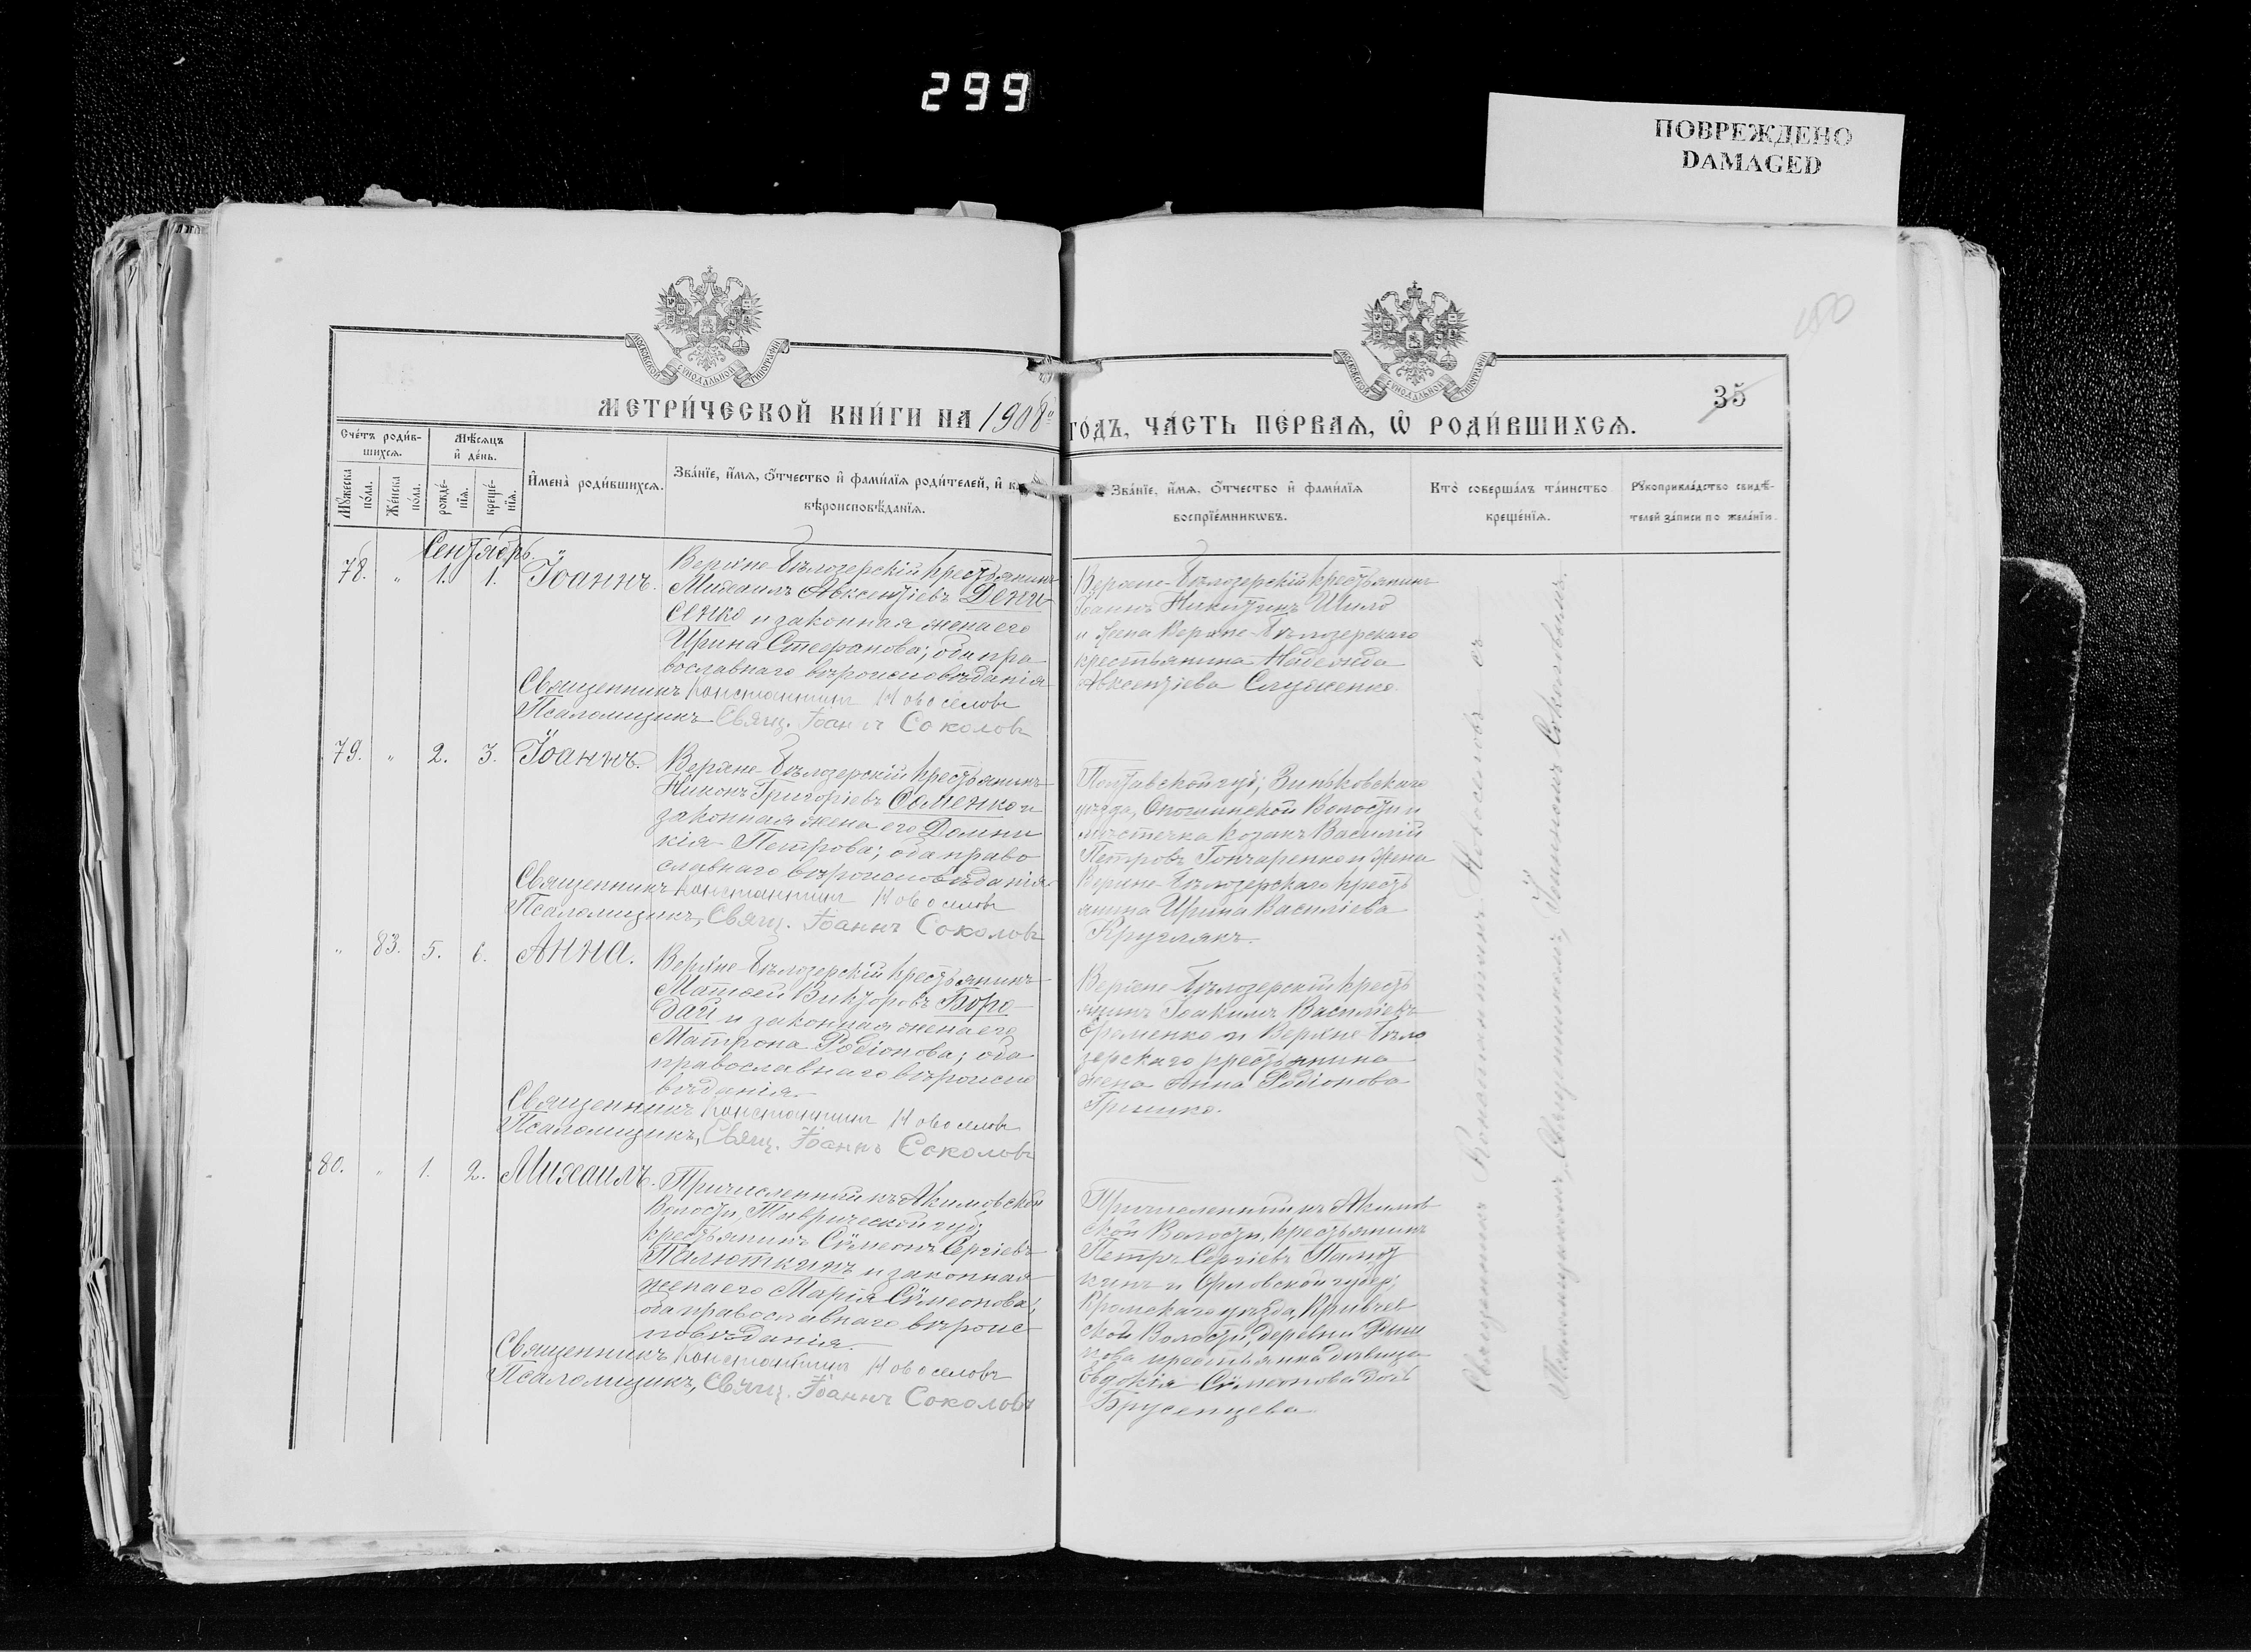 299
ПОВРЕЖДЕНО
DAMAGED
МОСКОВСКОЙ СѴНОДАЛЬНОЙ ТИПОГРАФІИ
МОСКОВСКОЙ СѴНОДАЛЬНОЙ ТИПОГРАФІИ
35
МЕТРИ́ЧЕСКОЙ КНИ́ГИ НА 1908
ГО́ДЪ, ЧА́СТЬ ПЕ́РВАѦ, Ѡ҆ РОДИ́ВШИХСѦ.
Сче́тъ роди́в-
шихсѧ.
Мѣ́сѧцъ
и҆ де́нь.
Мꙋ́жеска
по́ла.
Же́нска
по́ла.
рожде́-
нїѧ.
креще́-
нїѧ.
И҆мена̀ роди́вшихсѧ.
Зва́нїе, и҆́мѧ, ѻ҆́тчество и҆ фами́лїѧ роди́телей, и҆
вѣроисповѣ́данїѧ.
Зва́нїе, и҆́мѧ, ѻ҆́тчество и҆ фами́лїѧ
воспрїе́мникѡвъ.
Кто̀ соверша́лъ та́инство
креще́нїѧ.
Рꙋкоприкла́дство свидѣ́-
телей за́писи по жела́нїю.
Сентябрь.
78. " 1. 1. Іоаннъ.
Верхне-Бѣлозерскій крестьянинъ
Михаилъ Авксентіевъ Дени
сенко и законная жена его
Ирина Стефанова; оба пра
вославнаго вѣроисповѣданія
Священникъ Константинъ Новоселовъ
Псаломщикъ Свящ. Іоаннъ Соколовъ
Верхне-Бѣлозерскій крестьянинъ
Іоаннъ Никитинъ Шило
и жена Верхне-Бѣлозерскаго
крестьянина Надежда
Авксентіева
79. " 2. 3. Іоаннъ.
Верхне-Бѣлозерскій крестьянинъ
Никонъ Григоріевъ Саменко и
законная жена его Домни
кія Петрова; оба право
славнаго вѣроисповѣданія
Священникъ Константинъ Новоселовъ
Псаломщикъ, Свящ. Іоаннъ Соколовъ
Полтавской губ; Зиньковскаго
уѣзда, Опошнянской Волости и
мѣстечка козакъ Василій
Петровъ Гончаренко и жена
Верхне-Бѣлозерскаго кресть
янина Ирина Василіева
Кругляка.
" 83. 5. 6. Анна.
Верхне-Бѣлозерскій крестьянинъ
Матѳей Викторовъ Боро
дай и законная жена его
Матрона Родіонова; оба
православнаго вѣроиспо
вѣданія
Священникъ Константинъ Новоселовъ
Псаломщикъ, Свящ. Іоаннъ Соколовъ
Верхне-Бѣлозерскій кресть
янинъ Іоакимъ Василіевъ
Ѳоменко и Верхне-Бѣло
зерскаго крестьянина
жена Анна Родіонова
Гришко.
80. " 1. 2. Михаилъ.
Причисленный къ Акимовской
Волости, Таврической губ;
крестьянинъ Сѵмеонъ Сергіевъ
Палюткинъ и законная
жена его Марія Сѵмеонова;
оба православнаго вѣроис
повѣданія.
Священникъ Константинъ Новоселовъ
Псаломщикъ, Свящ. Іоаннъ Соколовъ
Причисленный къ Акимов
ской Волости, крестьянинъ
Петръ Сергіевъ Палют
кинъ и Орловской губер;
Кромскаго уѣзда, Кривчев
ской Волости, деревни
крестьянка дѣвица
Евдокія Сѵмеонова дочь
Брусенцева
Священникъ Константинъ Новоселовъ съ
Псаломщикомъ, Священникомъ, Іоанномъ Соколовымъ.